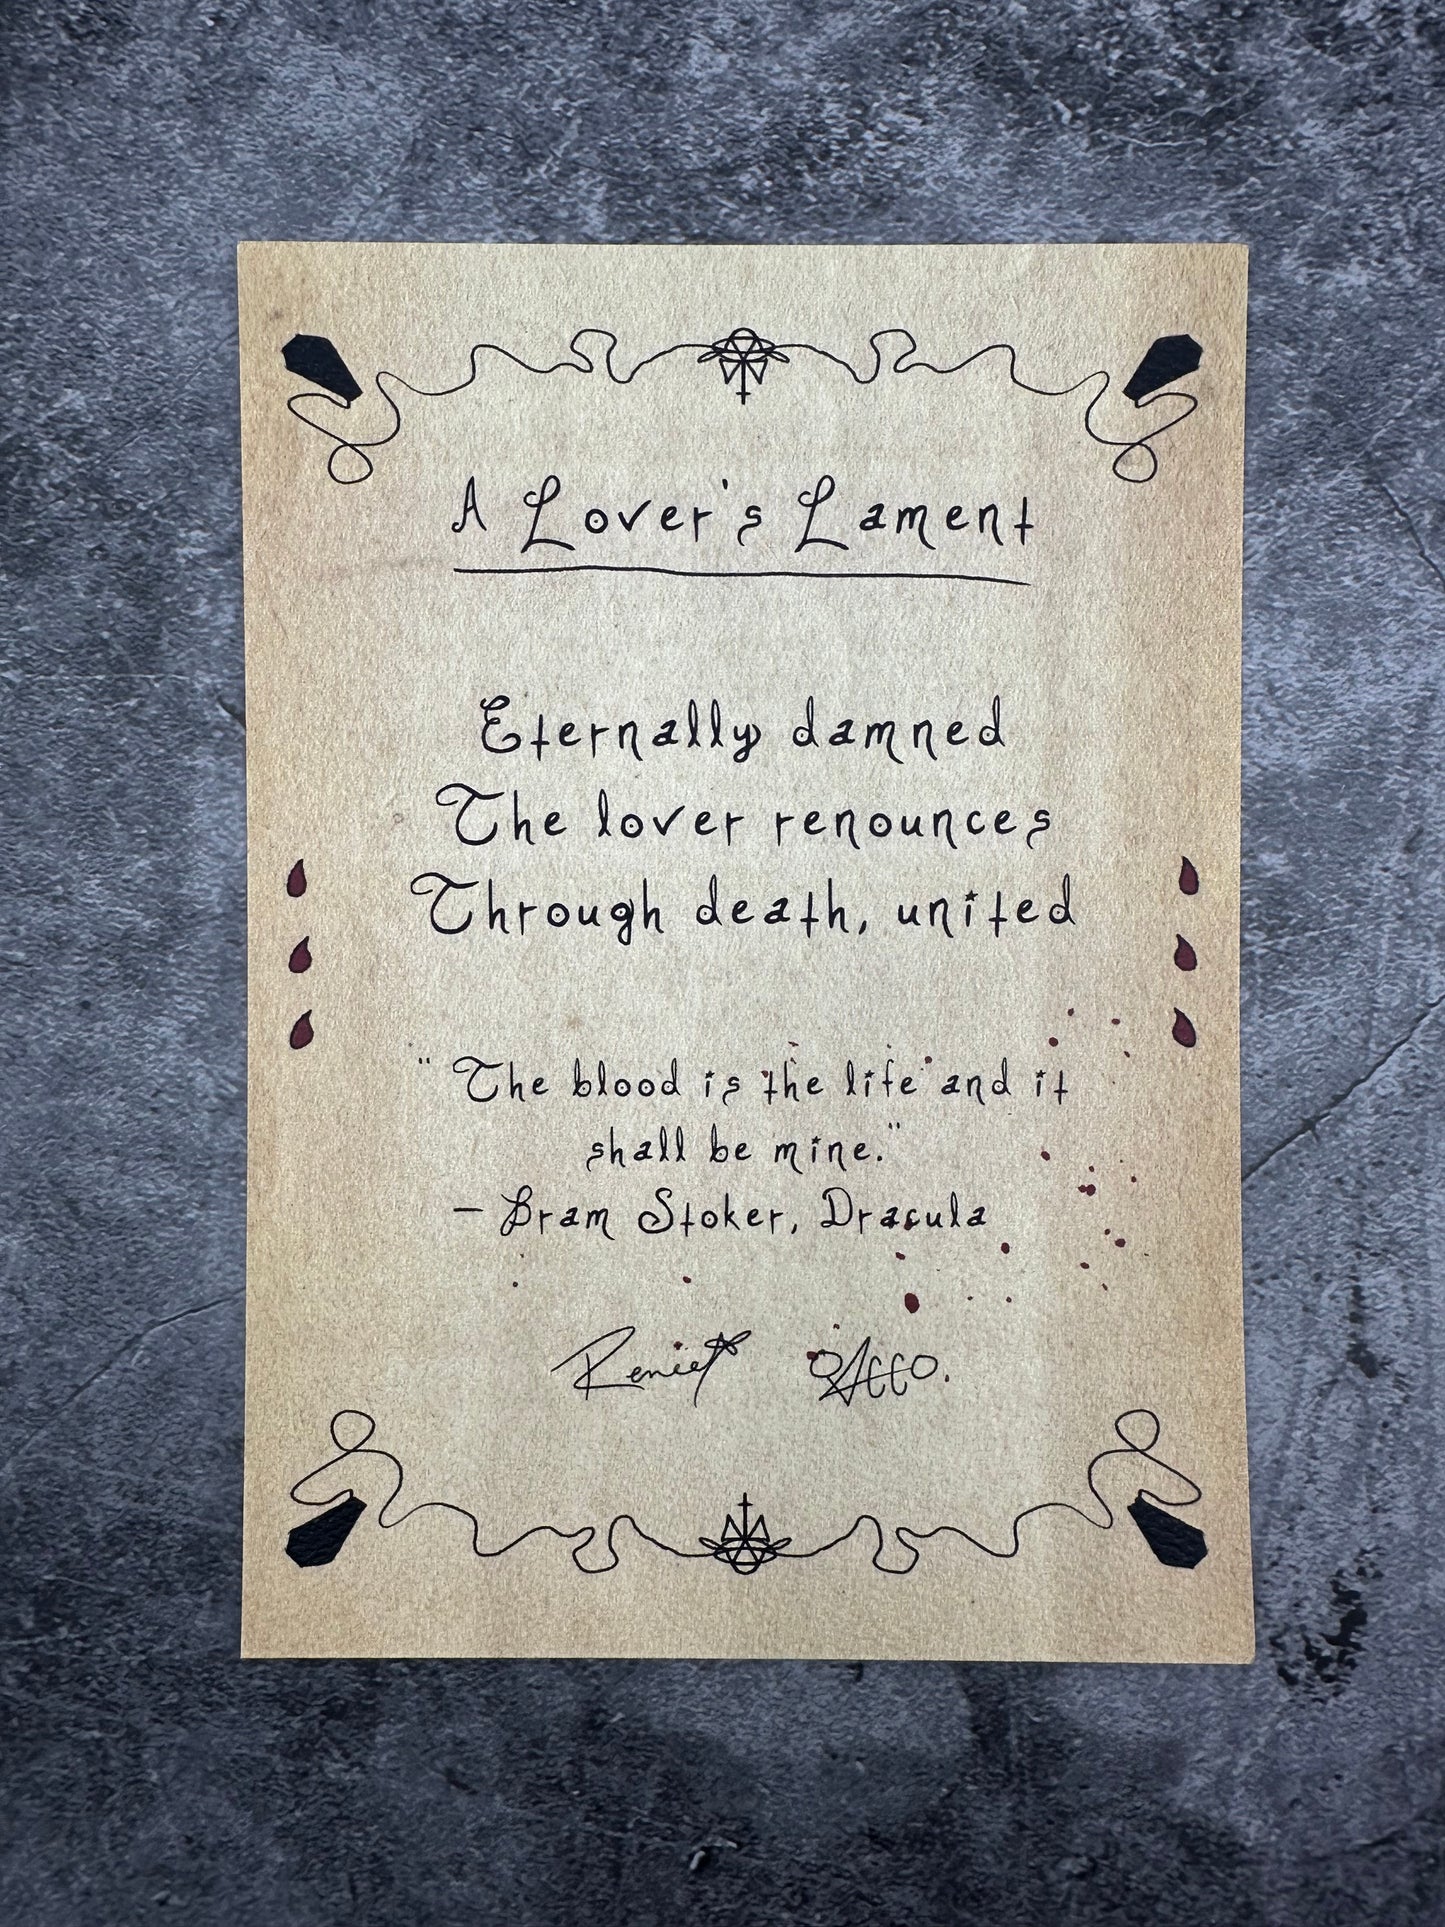 A Lover's Lament
Eternally damned
The lover renounces
Through death, united
"The blood is the life and it
shall be mine."
– Bram Stoker, Dracula